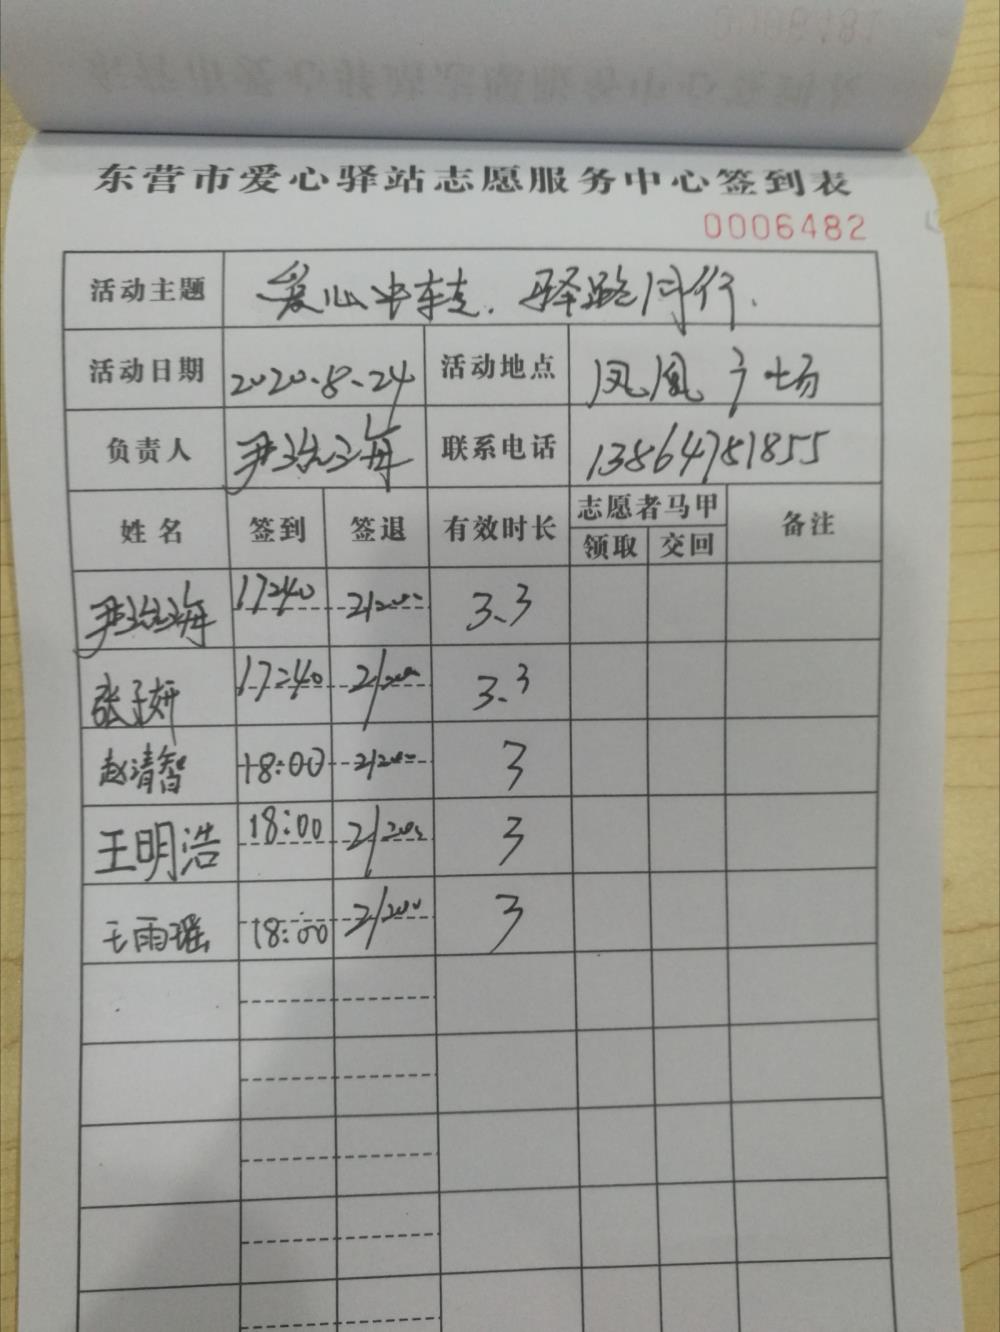 东营市爱心驿站志愿服务中心签到表
0006482
活动主题 爱心中转．驿路同行．
活动日期 2020.8.24 活动地点 凤凰广场
负责人 尹治海 联系电话 13864781855
姓名 签到 签退 有效时长 志愿者马甲 备注
领取 交回
尹治海 17:40 21:00 3.3
张子妍 17:40 21:00 3.3
赵清智 18:00 21:00 3
王明浩 18:00 21:00 3
王雨瑶 18:00 21:00 3